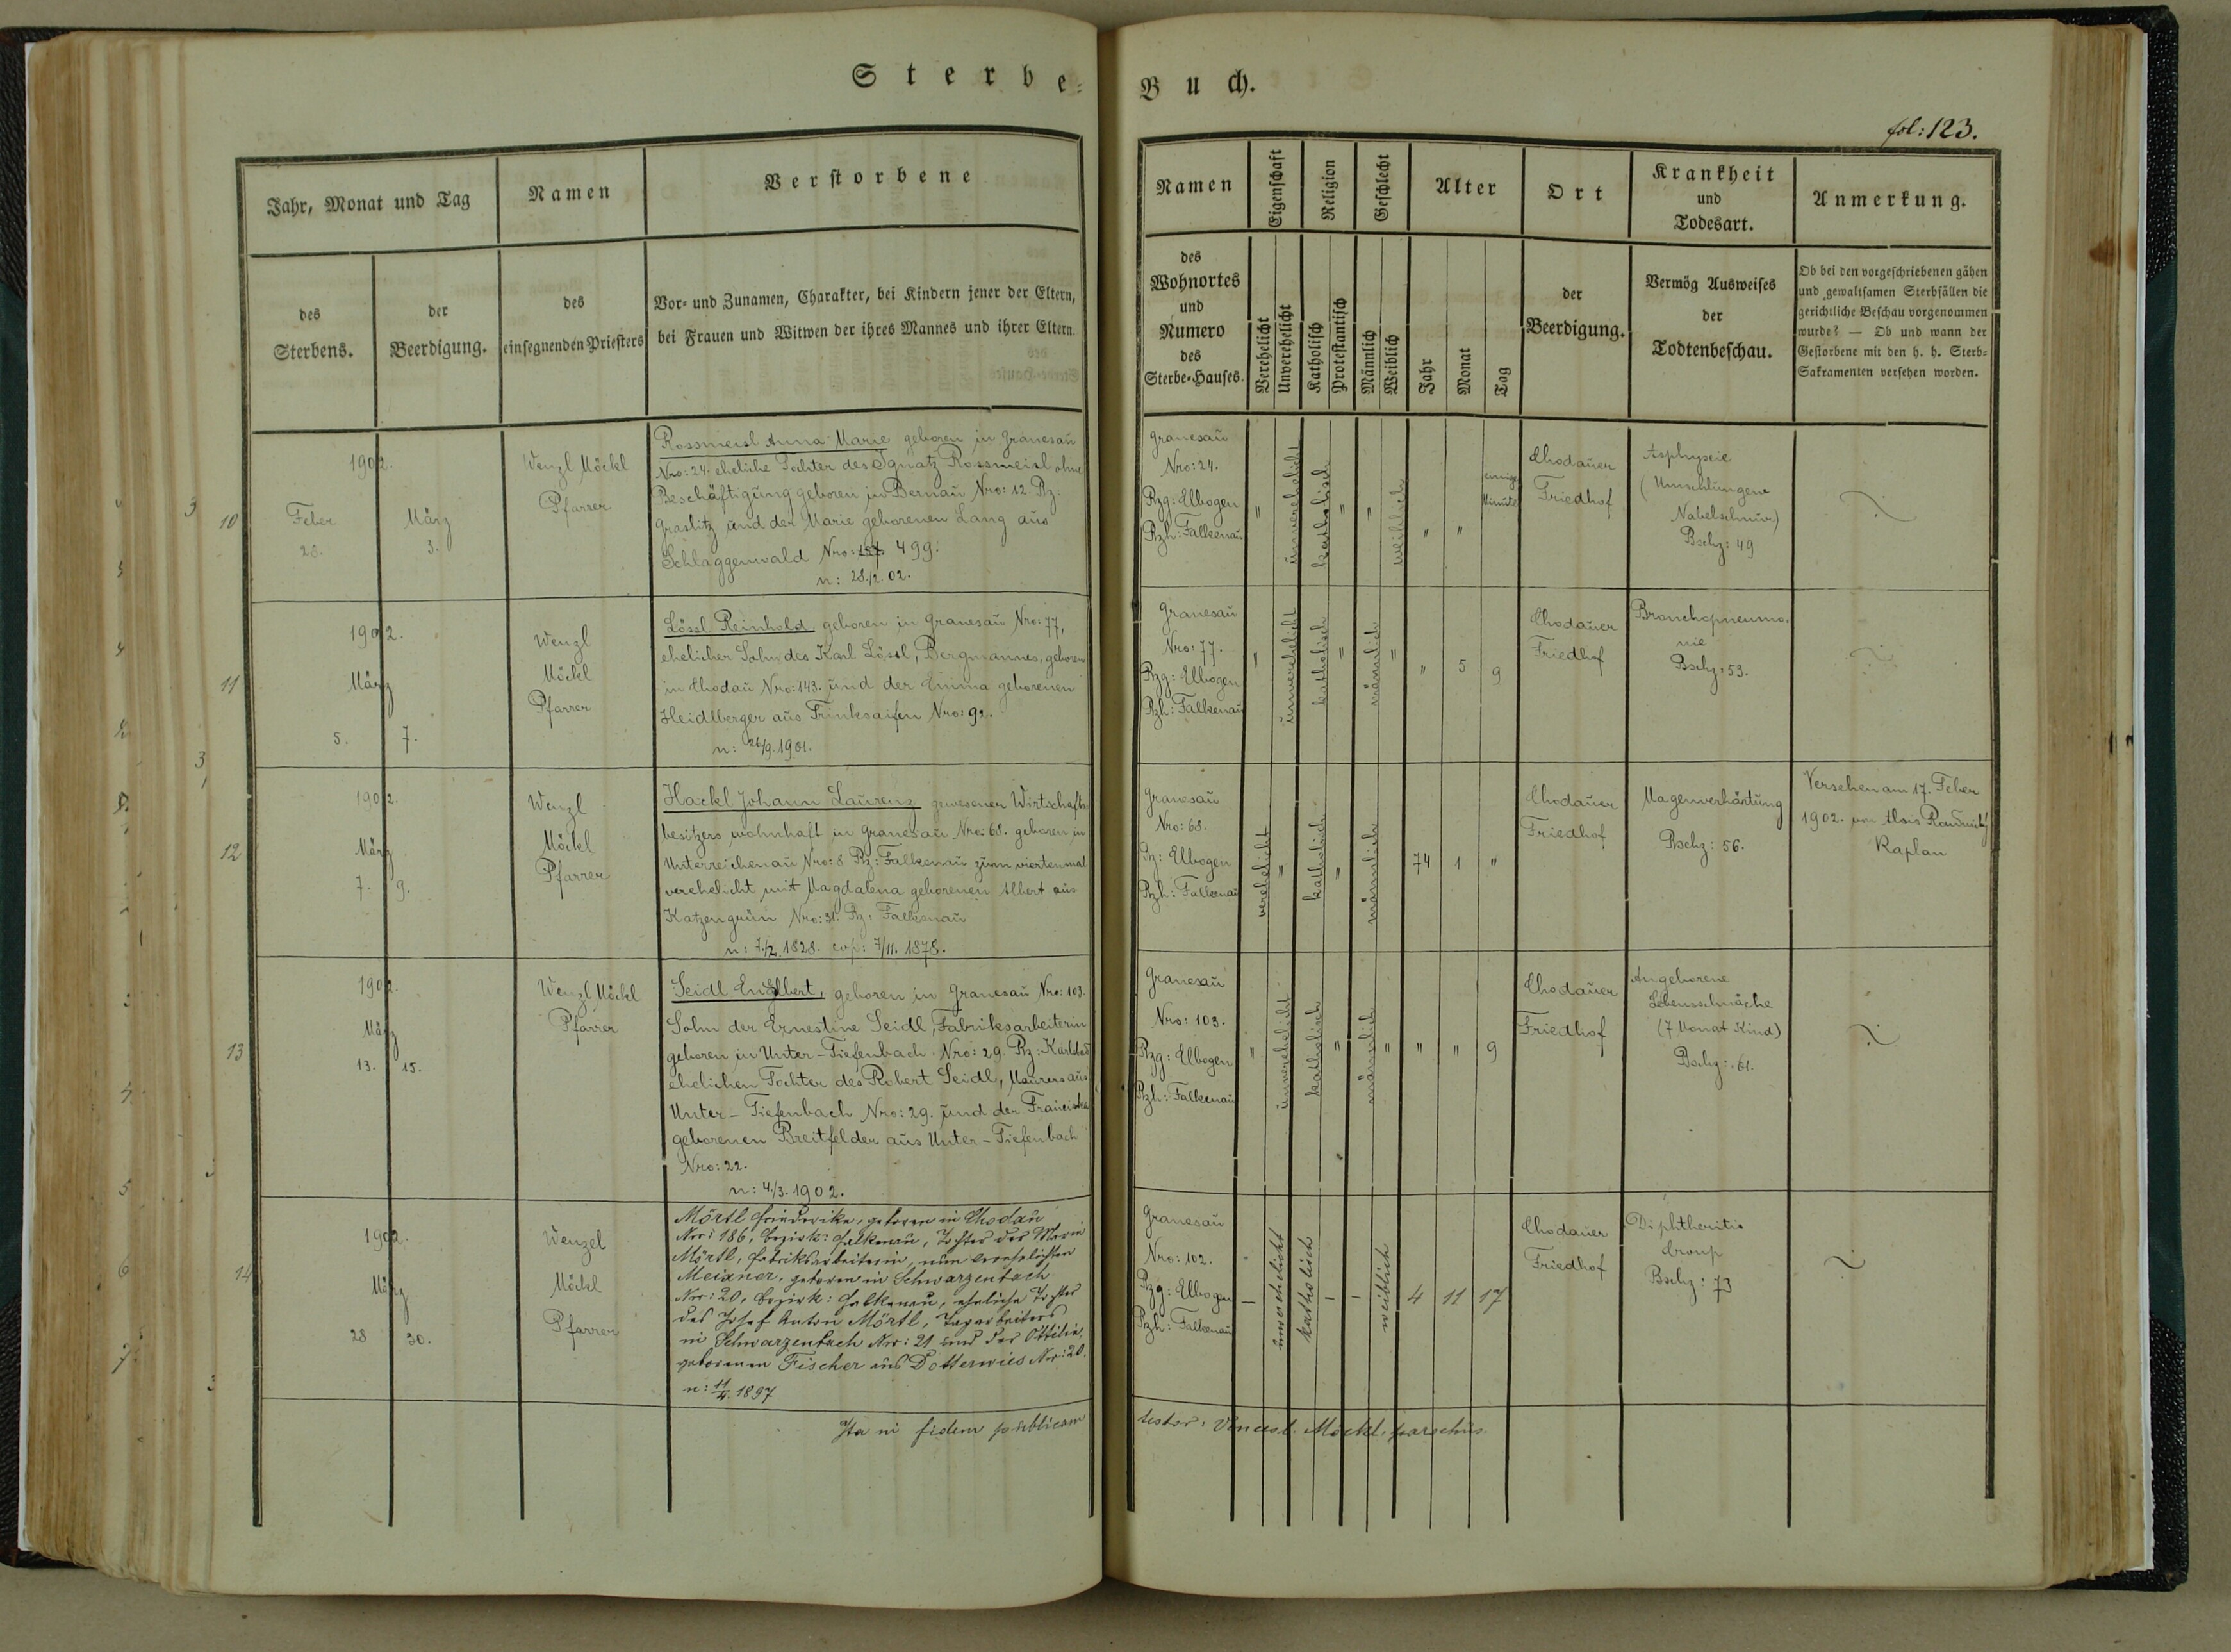 Sterbe-
Buch.
fol: 123.
Jahr, Monat und Tag
des Sterbens.
der Beerdigung.
Namen
des einsegnenden Priesters
Verstorbene
Vor- und Zunamen, Charakter, bei Kindern jener der Eltern,
bei Frauen und Witwen der ihres Mannes und ihrer Eltern.
Namen
des
Wohnortes
und
Numero
des
Sterbe-Hauses.
Eigenschaft
Verehelicht
Unverehelicht
Religion
Katholisch
Protestantisch
Geschlecht
Männlich
Weiblich
Alter
Jahr
Monat
Tag
Ort
der
Beerdigung.
Krankheit
und
Todesart.
Vermög Ausweises
der
Todtenbeschau.
Anmerkung.
Ob bei den vorgeschriebenen gähen
und gewaltsamen Sterbfällen die
gerichtliche Beschau vorgenommen
wurde? — Ob und wann der
Gestorbene mit den h. h. Sterb-
Sakramenten versehen worden.
10
1902.
Feber
28.
März
3.
Wenzl Möckl
Pfarrer
Rossmeisl Anna Marie geboren in Granesau
Nro: 24. eheliche Tochter des Ignatz Rossmeisl ohne
Beschäftigung geboren in Bernau Nro: 12. Bz:
Graslitz und der Marie geborenen Lang aus
Schlaggenwald Nro: 499.
n: 28./2. 02.
Granesau
Nro: 24.
Bzg: Elbogen
Bzh: Falkenau
"
unverehelicht
katholisch
"
"
weiblich
"
"
einige
Minute
Chodauer
Friedhof
Asphyxie
(Umschlungene
Nabelschnur)
Bschg: 49
11
1902.
März
5.
7.
Wenzl
Möckl
Pfarrer
Lössl Reinhold, geboren in Granesau Nro: 77,
ehelicher Sohn des Karl Lössl, Bergmannes, geboren
in Chodau Nro: 143. und der Emma geborenen
Heidlberger aus Trinksaifen Nro: 92.
n: 26/9. 1901.
Granesau
Nro: 77.
Bzg: Elbogen
Bzh: Falkenau
"
unverehelicht
katholisch
"
männlich
"
"
5
9
Chodauer
Friedhof
Bronchopneumo-
nie
Bschg: 53.
12
1902.
März
7.
9.
Wenzl
Möckl
Pfarrer
Hackl Johann Laurenz gewesener Wirtschafts-
besitzers wohnhaft in Granesau Nro: 68. geboren in
Unterreichenau Nro: 8 Bz: Falkenau zum viertenmal
verehelicht mit Magdalena geborenen Albert aus
Katzengrün Nro: 31. Bz: Falkenau
n: 7./2. 1828. cop: 7/11. 1878.
Granesau
Nro: 68.
Bz: Elbogen
Bzh: Falkenau
verehelicht
"
katholisch
"
männlich
74
1
"
Chodauer
Friedhof
Magenverhärtung
Bschg: 56.
Versehen am 17. Feber
1902. von Alois
Kaplan
13
1902.
März
13.
15.
Wenzl Möckl
Pfarrer
Seidl Englbert, geboren in Granesau Nro: 103.
Sohn der Ernestine Seidl, Fabriksarbeiterin
geboren in Unter-Tiefenbach Nro: 29. Bz: Karlsbad
ehelichen Tochter des Robert Seidl, Maurers aus
Unter-Tiefenbach Nro: 29. und der Franciska
geborenen Breitfelder aus Unter-Tiefenbach
Nro: 22.
n: 4./3. 1902.
Granesau
Nro: 103.
Bzg: Elbogen
Bzh: Falkenau
"
unverehelicht
katholisch
"
männlich
"
"
"
9
Chodauer
Friedhof
Angeborene
Lebensschwäche
(7 Monat Kind)
Bschg: 61.
14
1902.
März
28
30.
Wenzel
Möckl
Pfarrer
Mörtl Friederike, geboren in Chodau
Nro: 186, Bezirk: Falkenau, Tochter der Marie
Mörtl, Fabriksarbeiterin, nun verehelichten
Meixner, geboren in Schwarzenbach
Nro: 20, Bezirk: Falkenau, eheliche Tochter
des Josef Anton Mörtl, Tagarbeiters
in Schwarzenbach Nro: 21 und der Ottilie,
geborenen Fischer aus Dotterwies Nro: 20.
n: 11/4. 1897
Granesau
Nro: 102.
Bzg: Elbogen
Bzh: Falkenau
-
unverehelicht
katholisch
-
-
weiblich
4
11
17
Chodauer
Friedhof
Diphtheritis
Croup
Bschg: 73
Ita in fidem publicam
testor: Vincesl. Möckl, parochus.